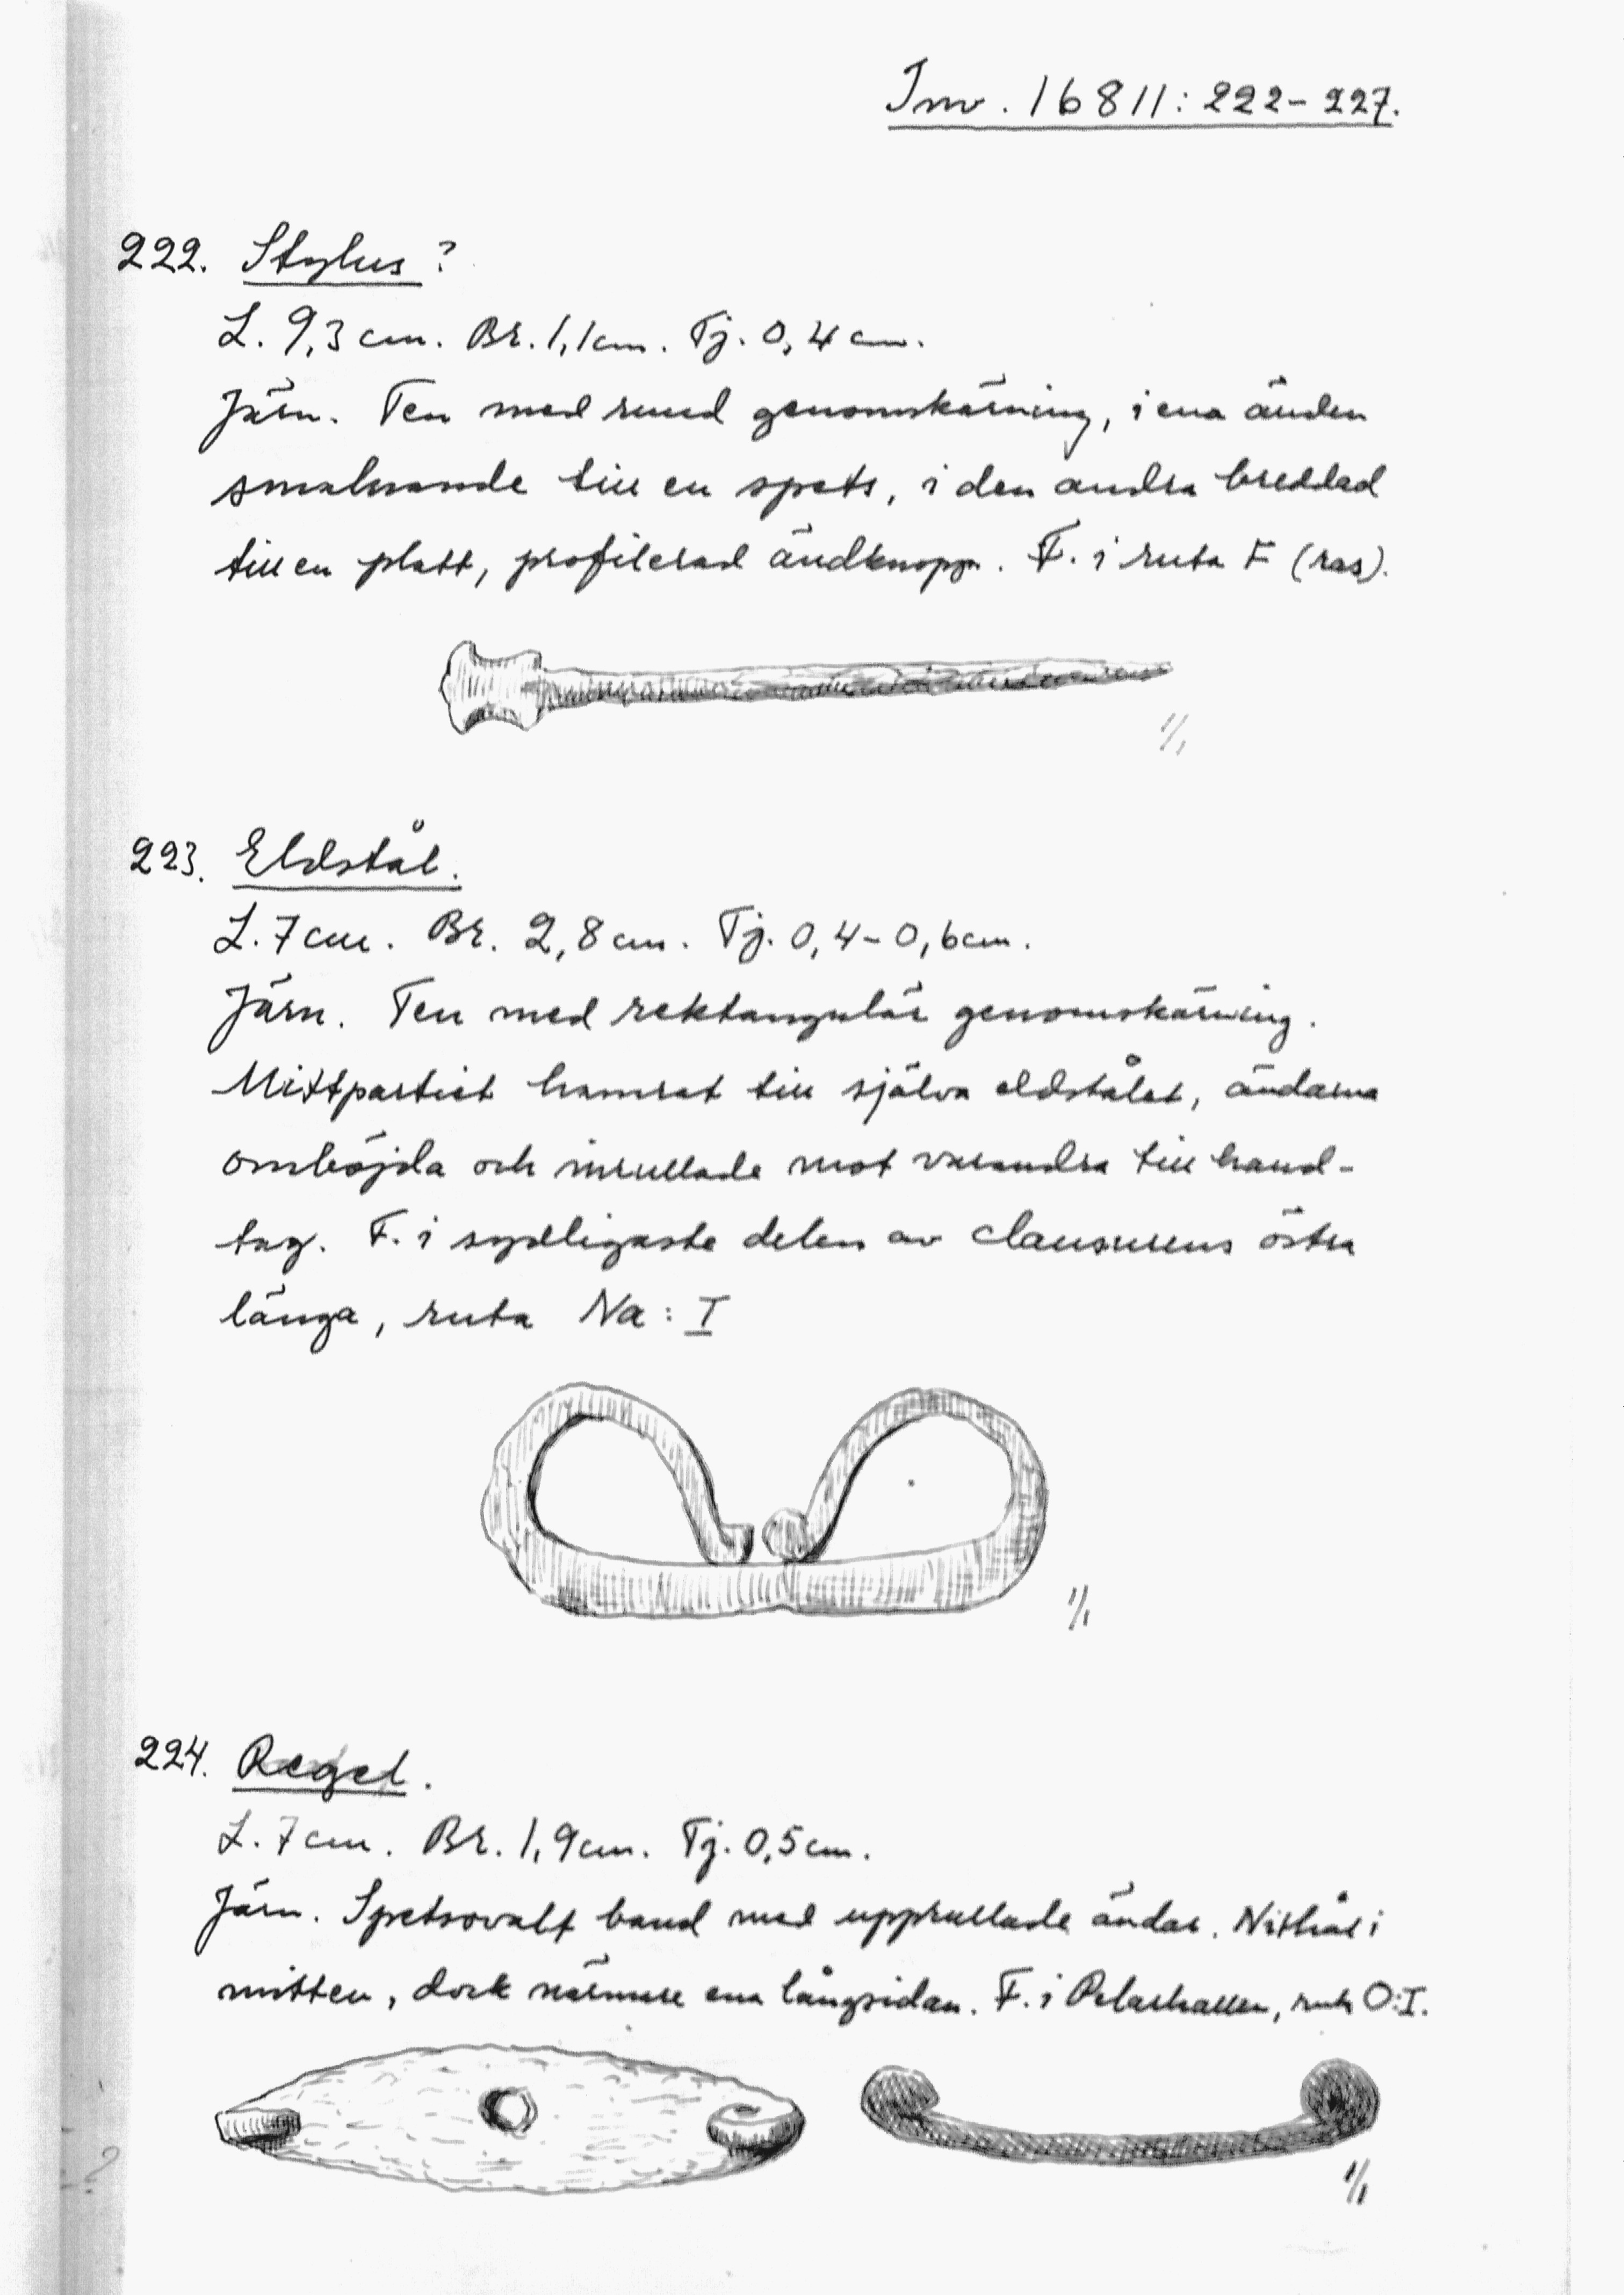 Inv. 16811: 222-227.
222. Stylus?
L. 9,3 cm. Br. 1,1 cm. Tj. 0,4 cm.
Järn. Ten med rund genomskärning, i ena änden
smalnande till en spets, i den andra breddad
till en platt, profilerad ändknopp. F. i ruta F (ras).
1/1
223. Eldstål.
L. 7 cm. Br. 2,8 cm. Tj. 0,4-0,6 cm.
Järn. Ten med rektangulär genomskärning.
Mittpartiet hamrat till själva eldstålet, ändarna
omböjda och inrullade mot varandra till hand-
tag. F. i sydligaste delen av clausurens östra
länga, ruta Na: I
1/1
224. Regel.
L. 7 cm. Br. 1,9 cm. Tj. 0,5 cm.
Järn. Spetsovalt band med upprullade ändar. Nithål i
mitten, dock närmare ena långsidan. F. i Pelarhallen, ruta O:I.
1/1